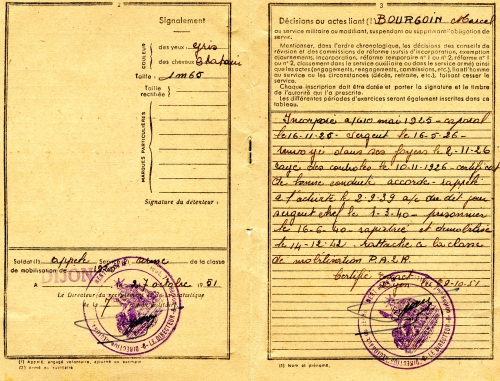 2
Signalement
COULEUR
des yeux : gris
des cheveux : châtain
Taille : 1m65
Taille rectifiée
MARQUES PARTICULIÈRES
Signature du détenteur :
Soldat (1) appelé Service armé de la classe
de mobilisation de
DIJON
A 27 octobre 1951
Le Directeur du recrutement et de la statistique
(1) Appelé, engagé volontaire, ajourné ou exempté
(2) Armé ou auxiliaire
3
Décisions ou actes liant (1) BOURGOIN Marcel
au service militaire ou modifiant, suspendant ou supprimant l'obligation de
servir.
Mentionner, dans l'ordre chronologique, les décisions des conseils de
révision et des commissions de réforme (sursis d'incorporation, exemption
ajournements, incorporation, réformes temporaire n° 1 ou 2, réforme n° 1
ou n° 2, classement dans service auxiliaire ou dans le service armé) ainsi
que les actes (engagements, rengagements, commissions), fixant l'homme
au service ou les circonstances (décès, retraite, etc.), faisant cesser le
service.
Chaque inscription doit être datée et porter la signature et le timbre
de l'autorité qui l'a prescrite.
Les différentes périodes d'exercices seront également inscrites dans ce
tableau.
Incorporé a/c 10 mai 1925 - caporal
le 16-11-25 - Sergent le 16-5-26 -
renvoyé dans ses foyers le 2-11-26
rayé des contrôles le 10-11-1926 - certificat
de bonne conduite accordé - rappelé
à l'activité le 2-9-39 a/c du dit jour
sergent chef le 1-3-40 - prisonnier
le 16-6-40 rapatrié et démobilisé
le 14-12-42 rattaché à la classe
de mobilisation
Certifié exact
Dijon le 29-10-51
(1) Nom et prénoms.